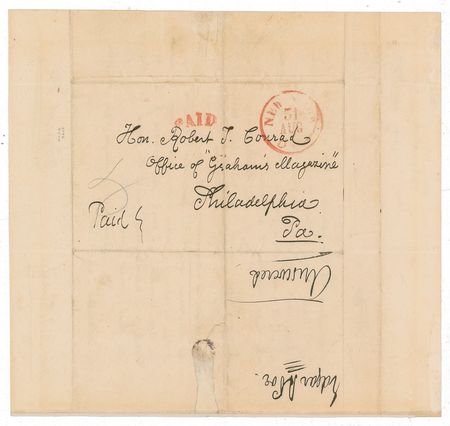 PAID
31
AUG
Hon. Robert T. Conrad
Office of "Graham's Magazine"
Philadelphia
Pa.
Paid
Answered
Edgar A Poe.